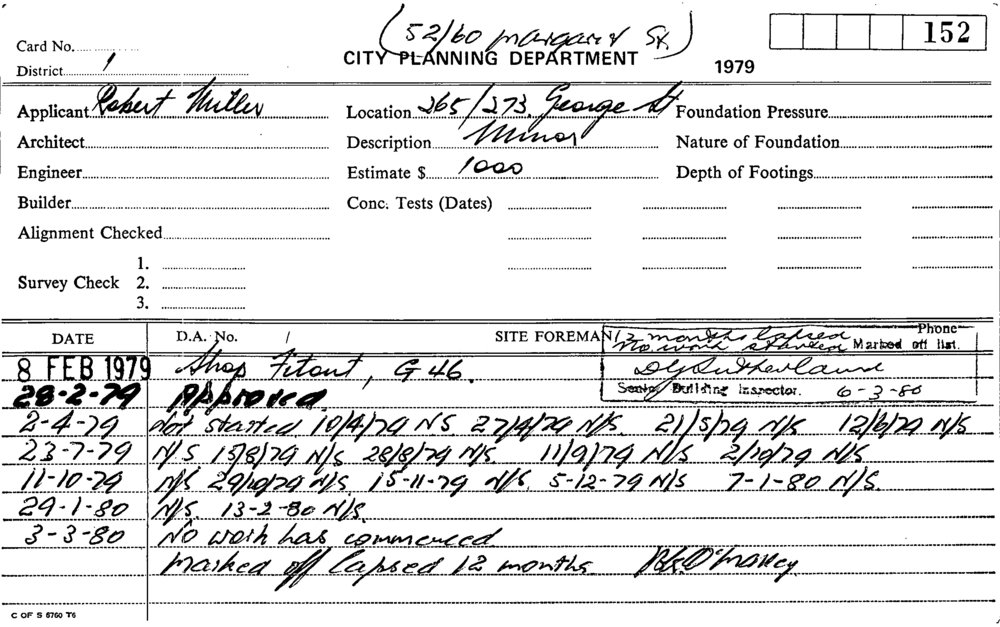 (52/60 Margaret St.)
Card No. 152
CITY PLANNING DEPARTMENT
District 1 1979
Applicant Robert Miller Location 265/273 George St Foundation Pressure
Architect Description Minor Nature of Foundation
Engineer Estimate $ 1000 Depth of Footings
Builder Conc. Tests (Dates)
Alignment Checked
1.
Survey Check 2.
3.
DATE D.A. No. / SITE FOREMAN Phone
12 months lapsed
No work started Marked off list.
8 FEB 1979 Shop Fitout, G 46.
D G Sutherland
Senior Building Inspector. 6-3-80
28-2-79 Approved.
2-4-79 Not started 10/4/79 NS 27/4/79 N/S. 21/5/79 N/S 12/6/79 N/S
23-7-79 N/S 15/8/79 N/S 28/8/79 N/S. 11/9/79 N/S 2/10/79 N/S.
11-10-79 N/S 29/10/79 N/S 15-11-79 N/S. 5-12-79 N/S 7-1-80 N/S.
29-1-80 N/S. 13-2-80 N/S.
3-3-80 No work has commenced
marked off lapsed 12 months.
C OF S 8760 T6